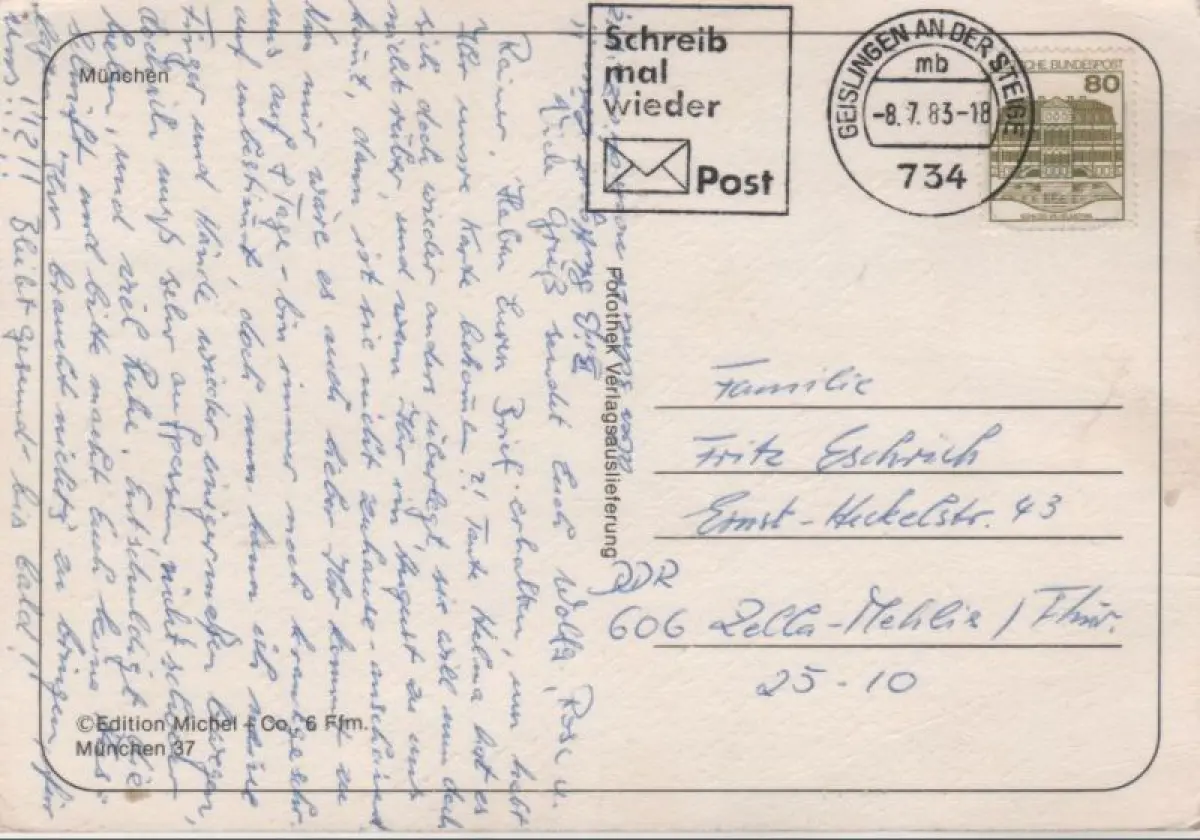 Schreib
mal
wieder
Post
GEISLINGEN AN DER STEIGE
mb
-8.7.83-18
734
DEUTSCHE BUNDESPOST
80
München
Viele Grüße sendet Euch Rosa u.
Rainer. Haben Euren Brief erhalten, nun habt
Ihr unsre Karte bekommen?! Tante Helma hat es
sich doch wieder anders überlegt, sie will nun doch
nicht rüber, und wenn Ihr im August zu uns
kommt, dann ist sie nicht zuhause - anscheinend
Von mir wäre es auch lieber Ihr kommt zu
uns auf 8 Tage - bin immer noch krankgeschr.
auf unbestimmt, doch nun kann ich meine
Finger und Hände wieder einigermaßen bewegen,
doch ich muß sehr aufpassen, nicht schwer
heben, und viel Ruhe. Entschuldigt die
Schrift und bitte macht Euch keine
Ihr braucht nichts zu bringen, für
uns!!! Bleibt gesund - bis bald!
Fotothek Verlagsauslieferung
Familie
Fritz Eschrich
Ernst-Heckelstr. 43
DDR
606 Zella-Mehlis / Thür.
25-10
©Edition Michel + Co, 6 Ffm.
München 37